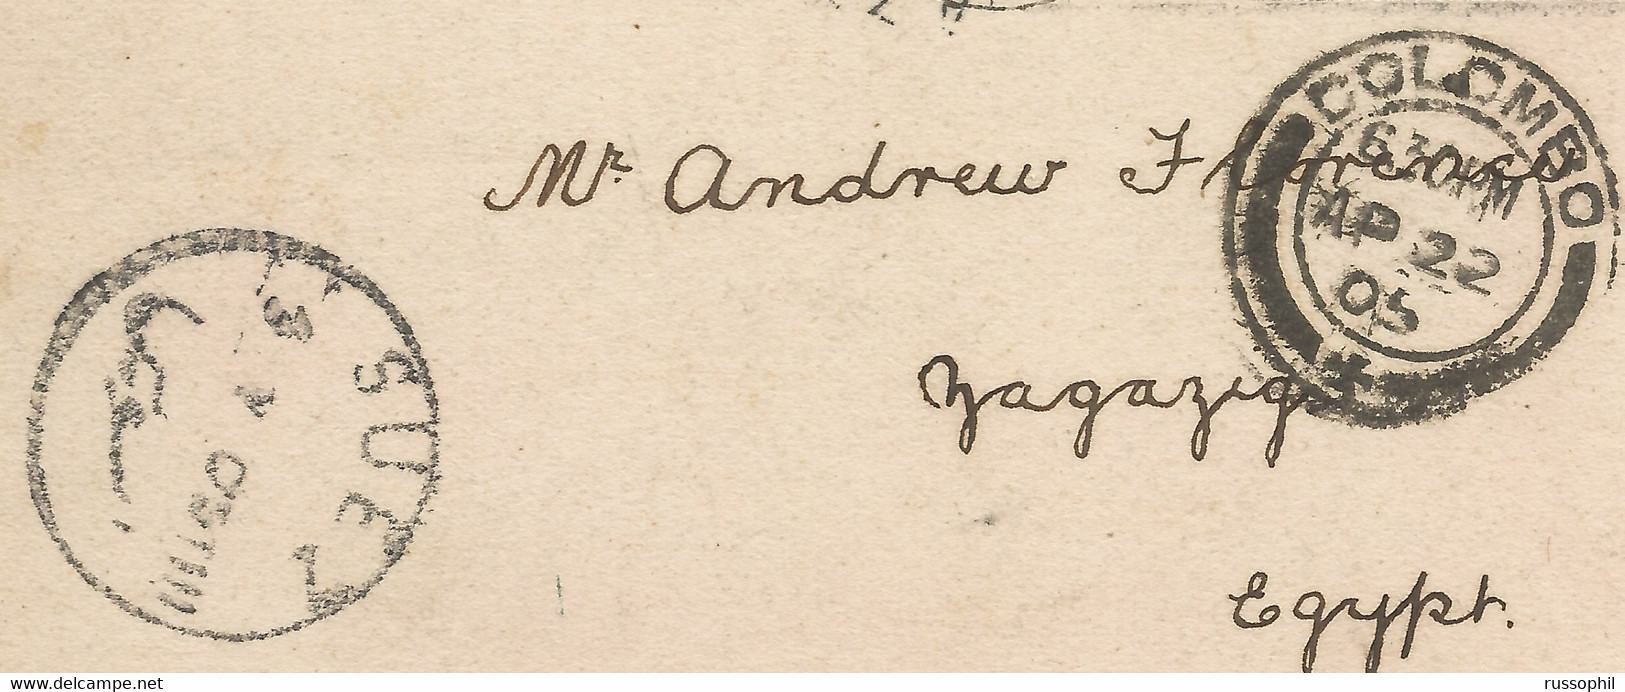 COLOMBO
6.30PM
AP 22
05
Mr. Andrew Florence
Zagazig
Egypt.
SUEZ
www.delcampe.net
russophil